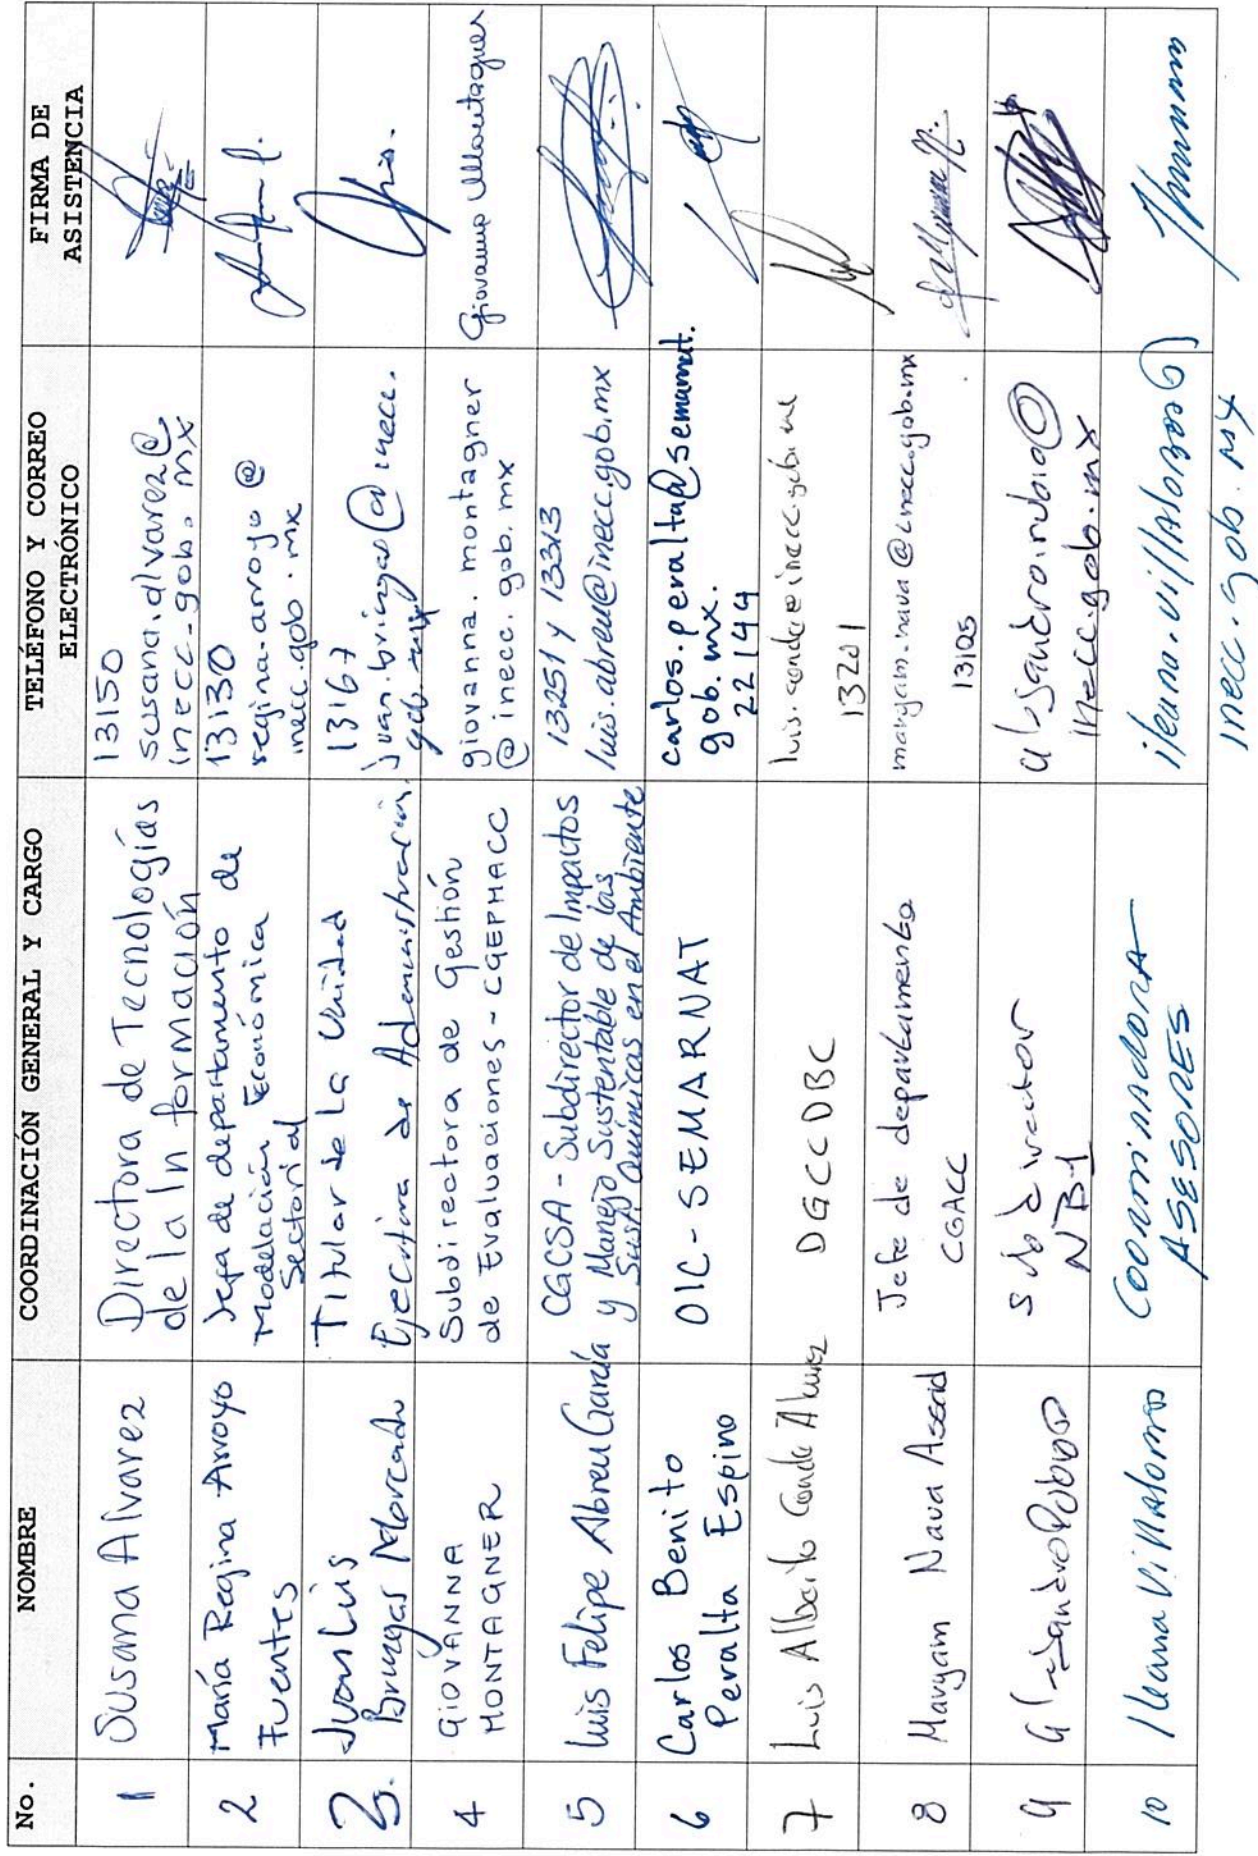 No.
NOMBRE
COORDINACIÓN GENERAL Y CARGO
TELÉFONO Y CORREO
ELECTRÓNICO
FIRMA DE
ASISTENCIA
1
Susana Alvarez
Directora de Tecnologías
de la Información
13150
susana.alvarez@
inecc.gob.mx
2
María Regina Arroyo
Fuentes
Jefa de departamento de
Modelación Económica
Sectorial
13130
regina.arroyo@
inecc.gob.mx
3.
Juan Luis
Bringas Mercado
Titular de La Unidad
Ejecutiva de Administración
13167
juan.bringas@inecc.
gob.mx
4
GIOVANNA
MONTAGNER
Subdirectora de Gestión
de Evaluaciones - CGEPMACC
giovanna.montagner
@inecc.gob.mx
Giovanna Montagner
5
Luis Felipe Abreu García
CGCSA - Subdirector de Impactos
y Manejo Sustentable de las
Sust. Químicas en el Ambiente
13251 y 13313
luis.abreu@inecc.gob.mx
6
Carlos Benito
Peralta Espino
OIC - SEMARNAT
carlos.peralta@semarnat.
gob.mx.
22144
7
Luis Alberto Conde
DGCCDBC
luis.conde@inecc.gob.mx
13201
8
Maryam Nava Assad
Jefe de departamento
CGACC
maryam.nava@inecc.gob.mx
13105
9
Alejandro Rubio
Subdirector
NB-1
alejandro.rubio@
inecc.gob.mx
10
Ileana Villalobos
Coordinadora
ASESORES
ileana.villalobos@
inecc.gob.mx